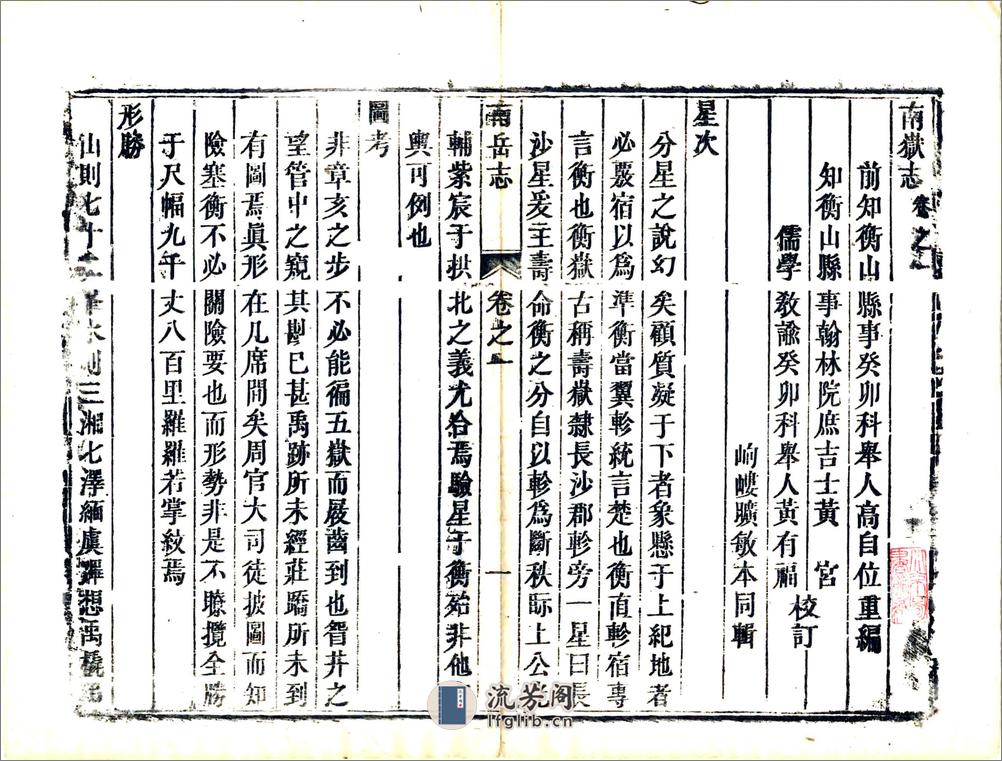 南嶽志卷之一
前知衡山縣事癸卯科舉人高自位重編
知衡山縣事翰林院庶吉士黃宮
儒學教諭癸卯科舉人黃有福
校訂
岣嶁曠敏本同輯
星次
分星之說幻矣顧質凝于下者象懸于上紀地者
必覈宿以爲準衡當翼軫統言楚也衡直軫宿專
言衡也衡嶽古稱壽嶽隸長沙郡軫旁一星曰長
沙星爰主壽命衡之分自以軫爲斷秩眎上公光
南岳志 卷之一 一
輔紫宸于拱北之義尤合焉驗星于衡殆非他
輿可例也
圖考
非章亥之步不必能徧五嶽而屐齒到也眢井之
望管中之窺其尠已甚禹跡所未經莊蹻所未到
有圖焉眞形在几席間矣周官大司徒披圖而知
險塞衡不必關險要也而形勢非是不瞭攬全勝
于尺幅九千丈八百里羅羅若掌紋焉
形勝
山則七十二峯水則三湘七澤緬虞蹕想禹橇
流芳阁
lfglib.cn